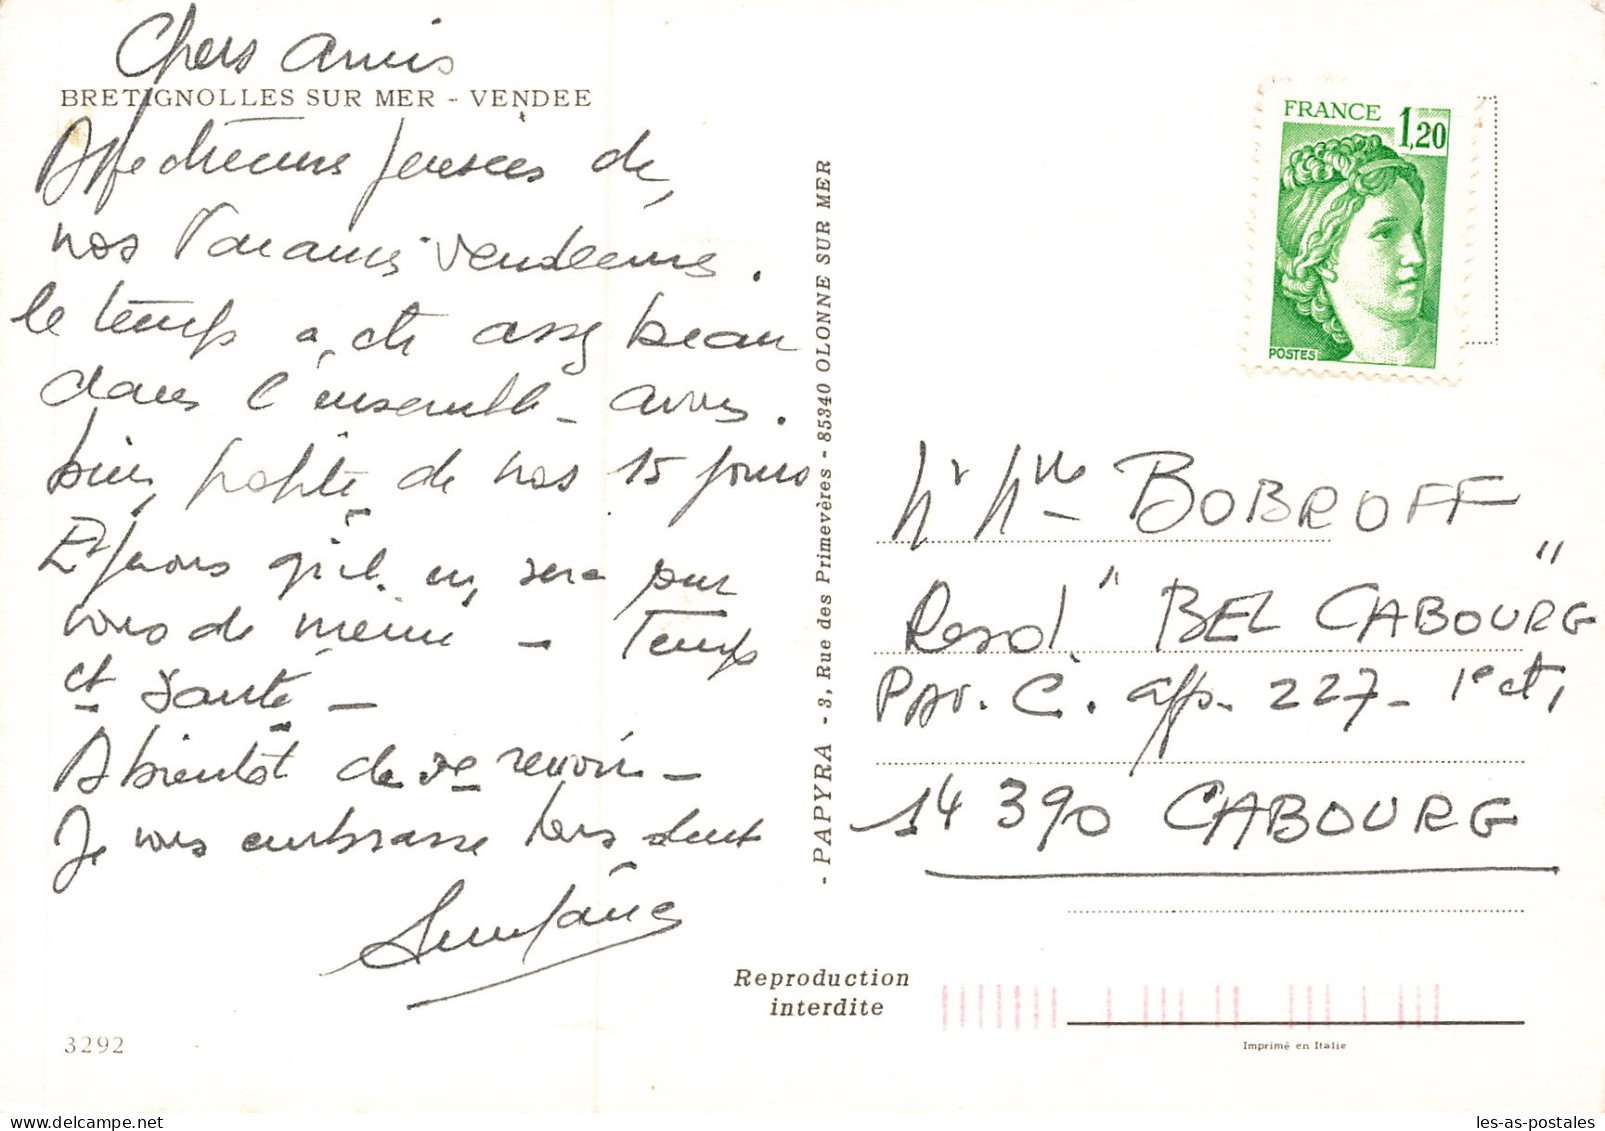 Chers Amis
BRETIGNOLLES SUR MER - VENDEE
Affectueuses pensées de
nos Vacances vendéennes.
le temps a été assez beau
dans l'ensemble - avons
bien profité de nos 15 jours
Espérons qu'il en sera pour
vous de même - Temps
et Santé -
A bientôt de se revoir -
Je vous embrasse tous deux
- PAPYRA - 3, Rue des Primevères - 85340 OLONNE SUR MER
FRANCE
1,20
POSTES
Mr Mme BOBROFF
Resd. "BEL CABOURG"
PAV. C. app. 227 - 1e ét,
14 390 CABOURG
Reproduction
interdite
3292
Imprimé en Italie
les-as-postales